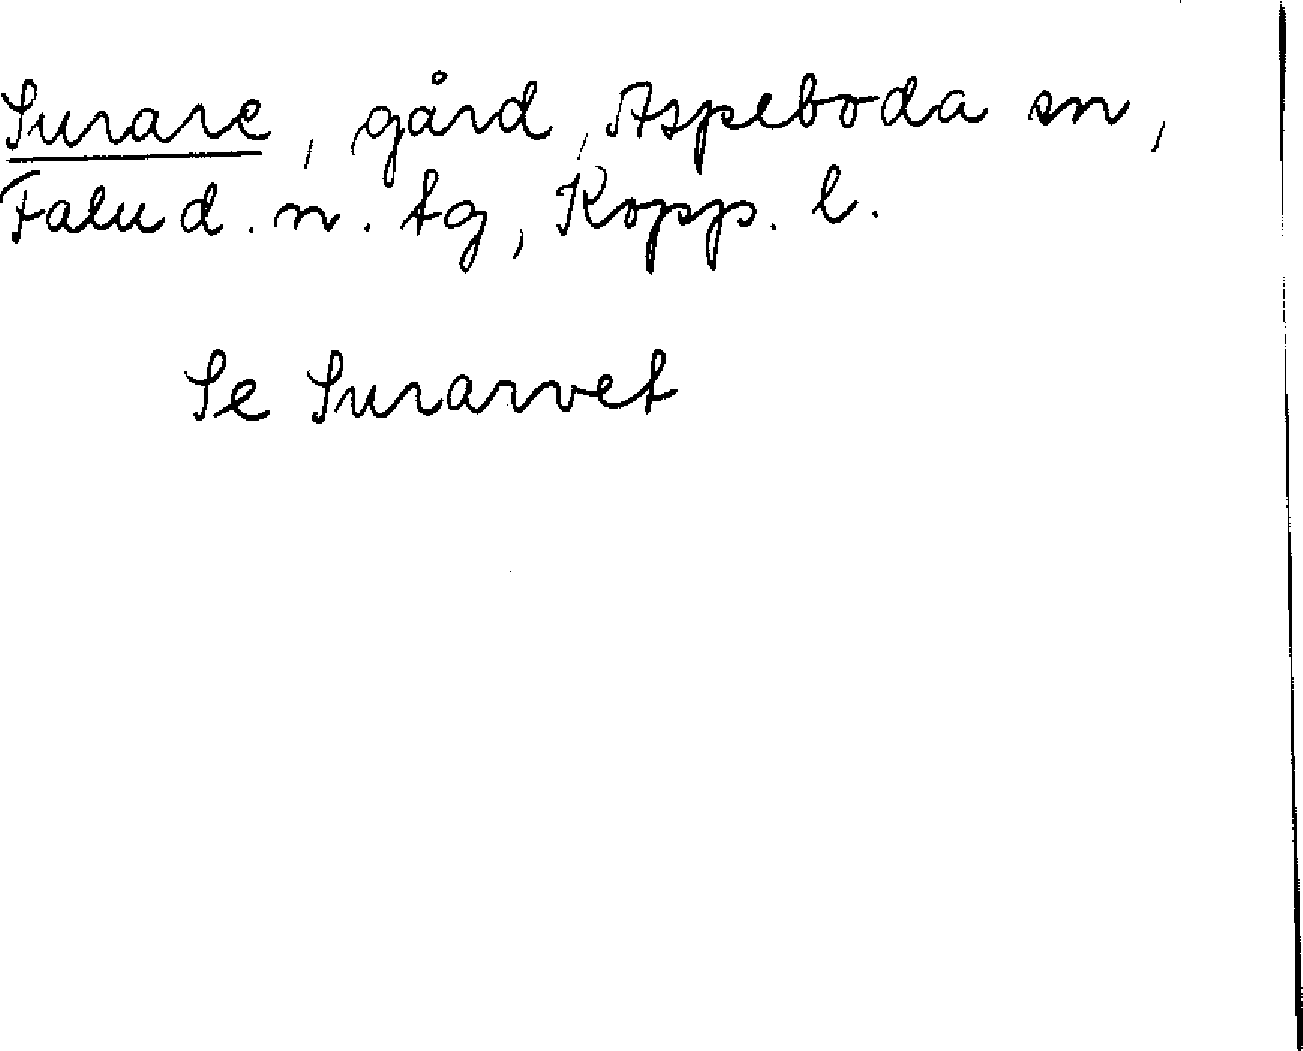 Surare, gård, Aspeboda sn,
Falu d. n. tg, Kopp. l.
Se Surarvet